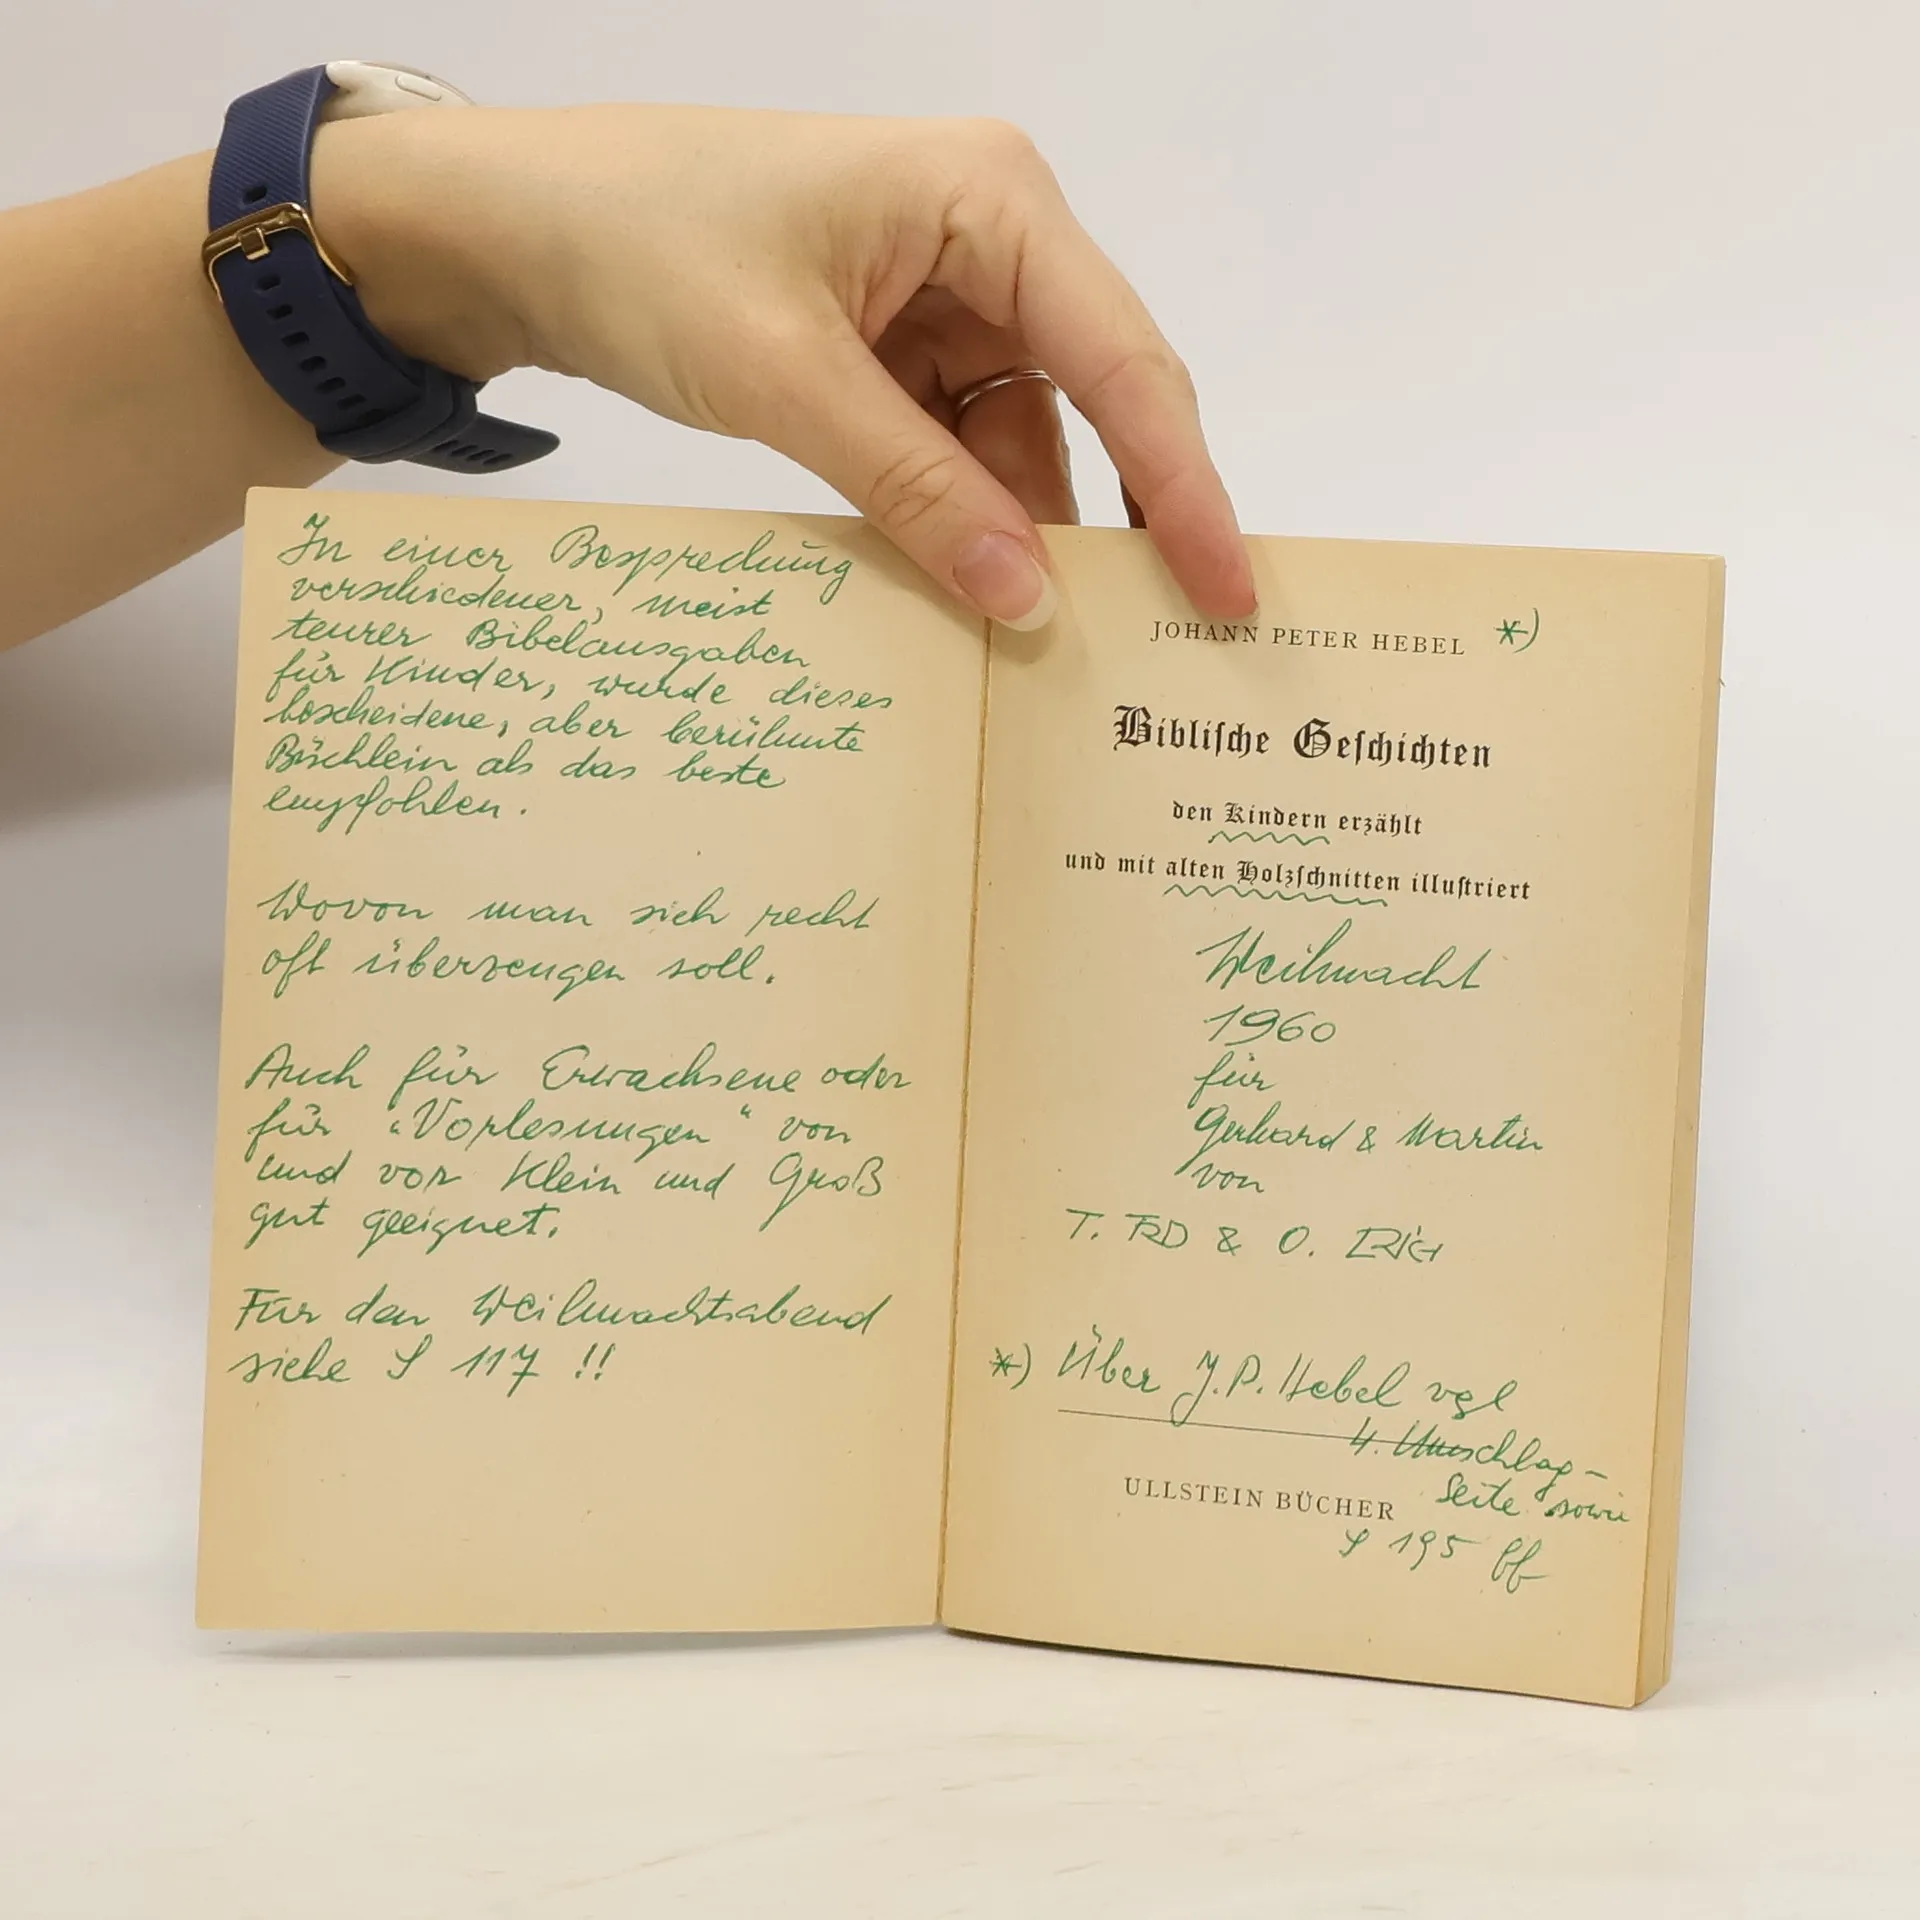 In einer Besprechung
verschiedener, meist
teurer Bibelausgaben
für Kinder, wurde dieses
bescheidene, aber berühmte
Büchlein als das beste
empfohlen.
Wovon man sich recht
oft überzeugen soll.
Auch für Erwachsene oder
für "Vorlesungen" von
und vor Klein und Groß
gut geeignet.
Für den Weihnachtsabend
siehe S 117 !!
JOHANN PETER HEBEL *)
Bibliſche Geſchichten
den Kindern erzählt
und mit alten Holzſchnitten illuſtriert
Weihnacht
1960
für
Gerhard & Martin
von
T. & O.
*) Über J. P. Hebel vgl
4. Umschlag-
Seite sowie
ULLSTEIN BÜCHER
S 195 ff